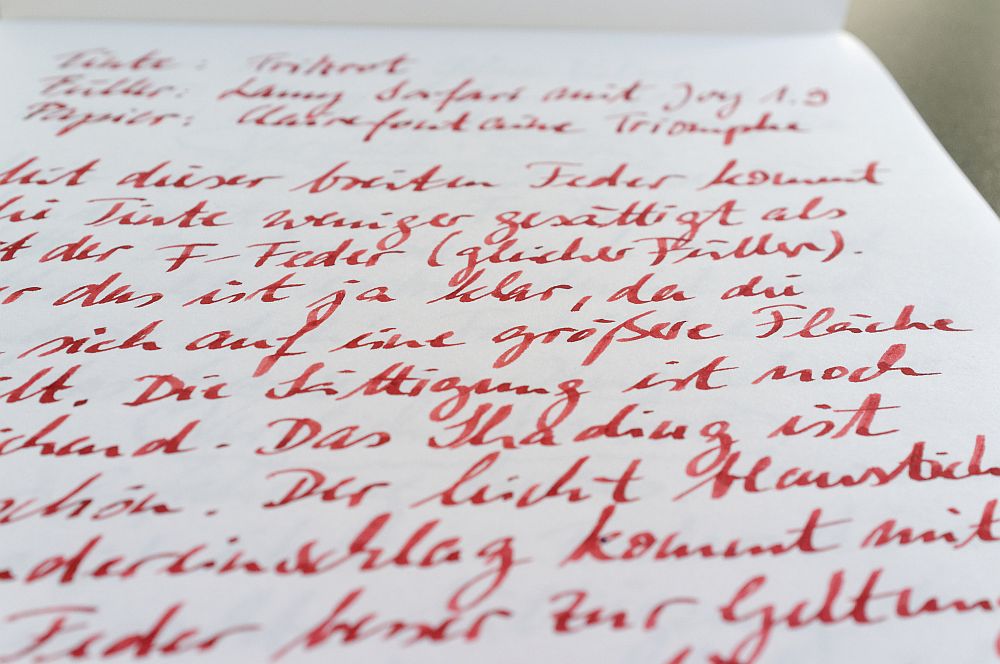 Tinte: Trikrot
Füller: Lamy Safari mit Joy 1.9
Papier: Clairefontaine Triomphe
Mit dieser breiten Feder kommt
die Tinte weniger gesättigt als
mit der F-Feder (gleicher Füller).
er das ist ja klar, da die
sich auf eine größere Fläche
ilt. Die Sättigung ist noch
ichend. Das Shading ist
schön. Der leicht blaustich
ndereinschlag kommt mit
Feder besser zur Geltung